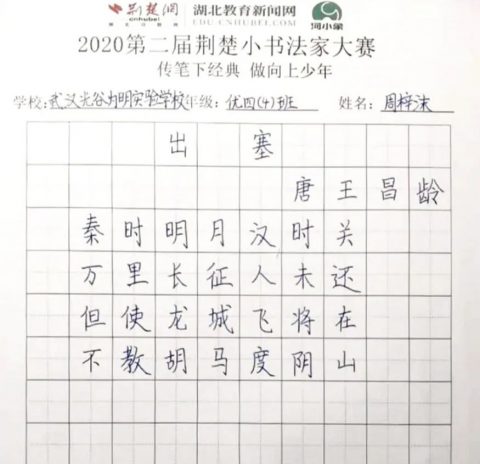 荆楚网 湖北教育新闻网 河小象
cnhubei EDU.CNHUBEI.COM
2020第二届荆楚小书法家大赛
传笔下经典 做向上少年
学校:武汉光谷为明实验学校年级:优四(4)班 姓名:周梓沫
出塞
唐王昌龄
秦时明月汉时关
万里长征人未还
但使龙城飞将在
不教胡马度阴山